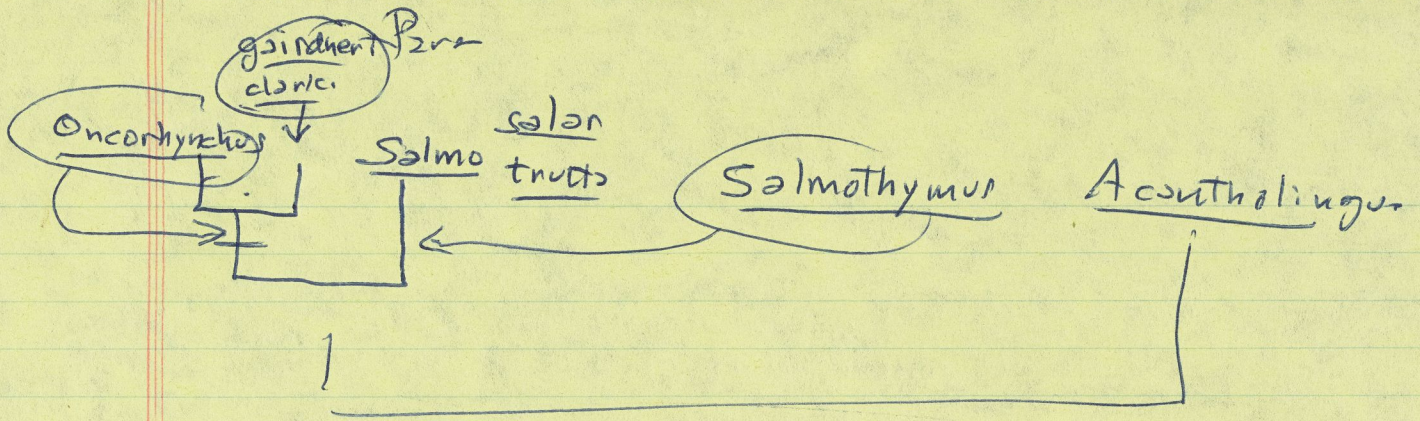 gairdneri Para
clarki
Oncorhynchus
Salmo salar
trutta
Salmothymus
Acantholingua